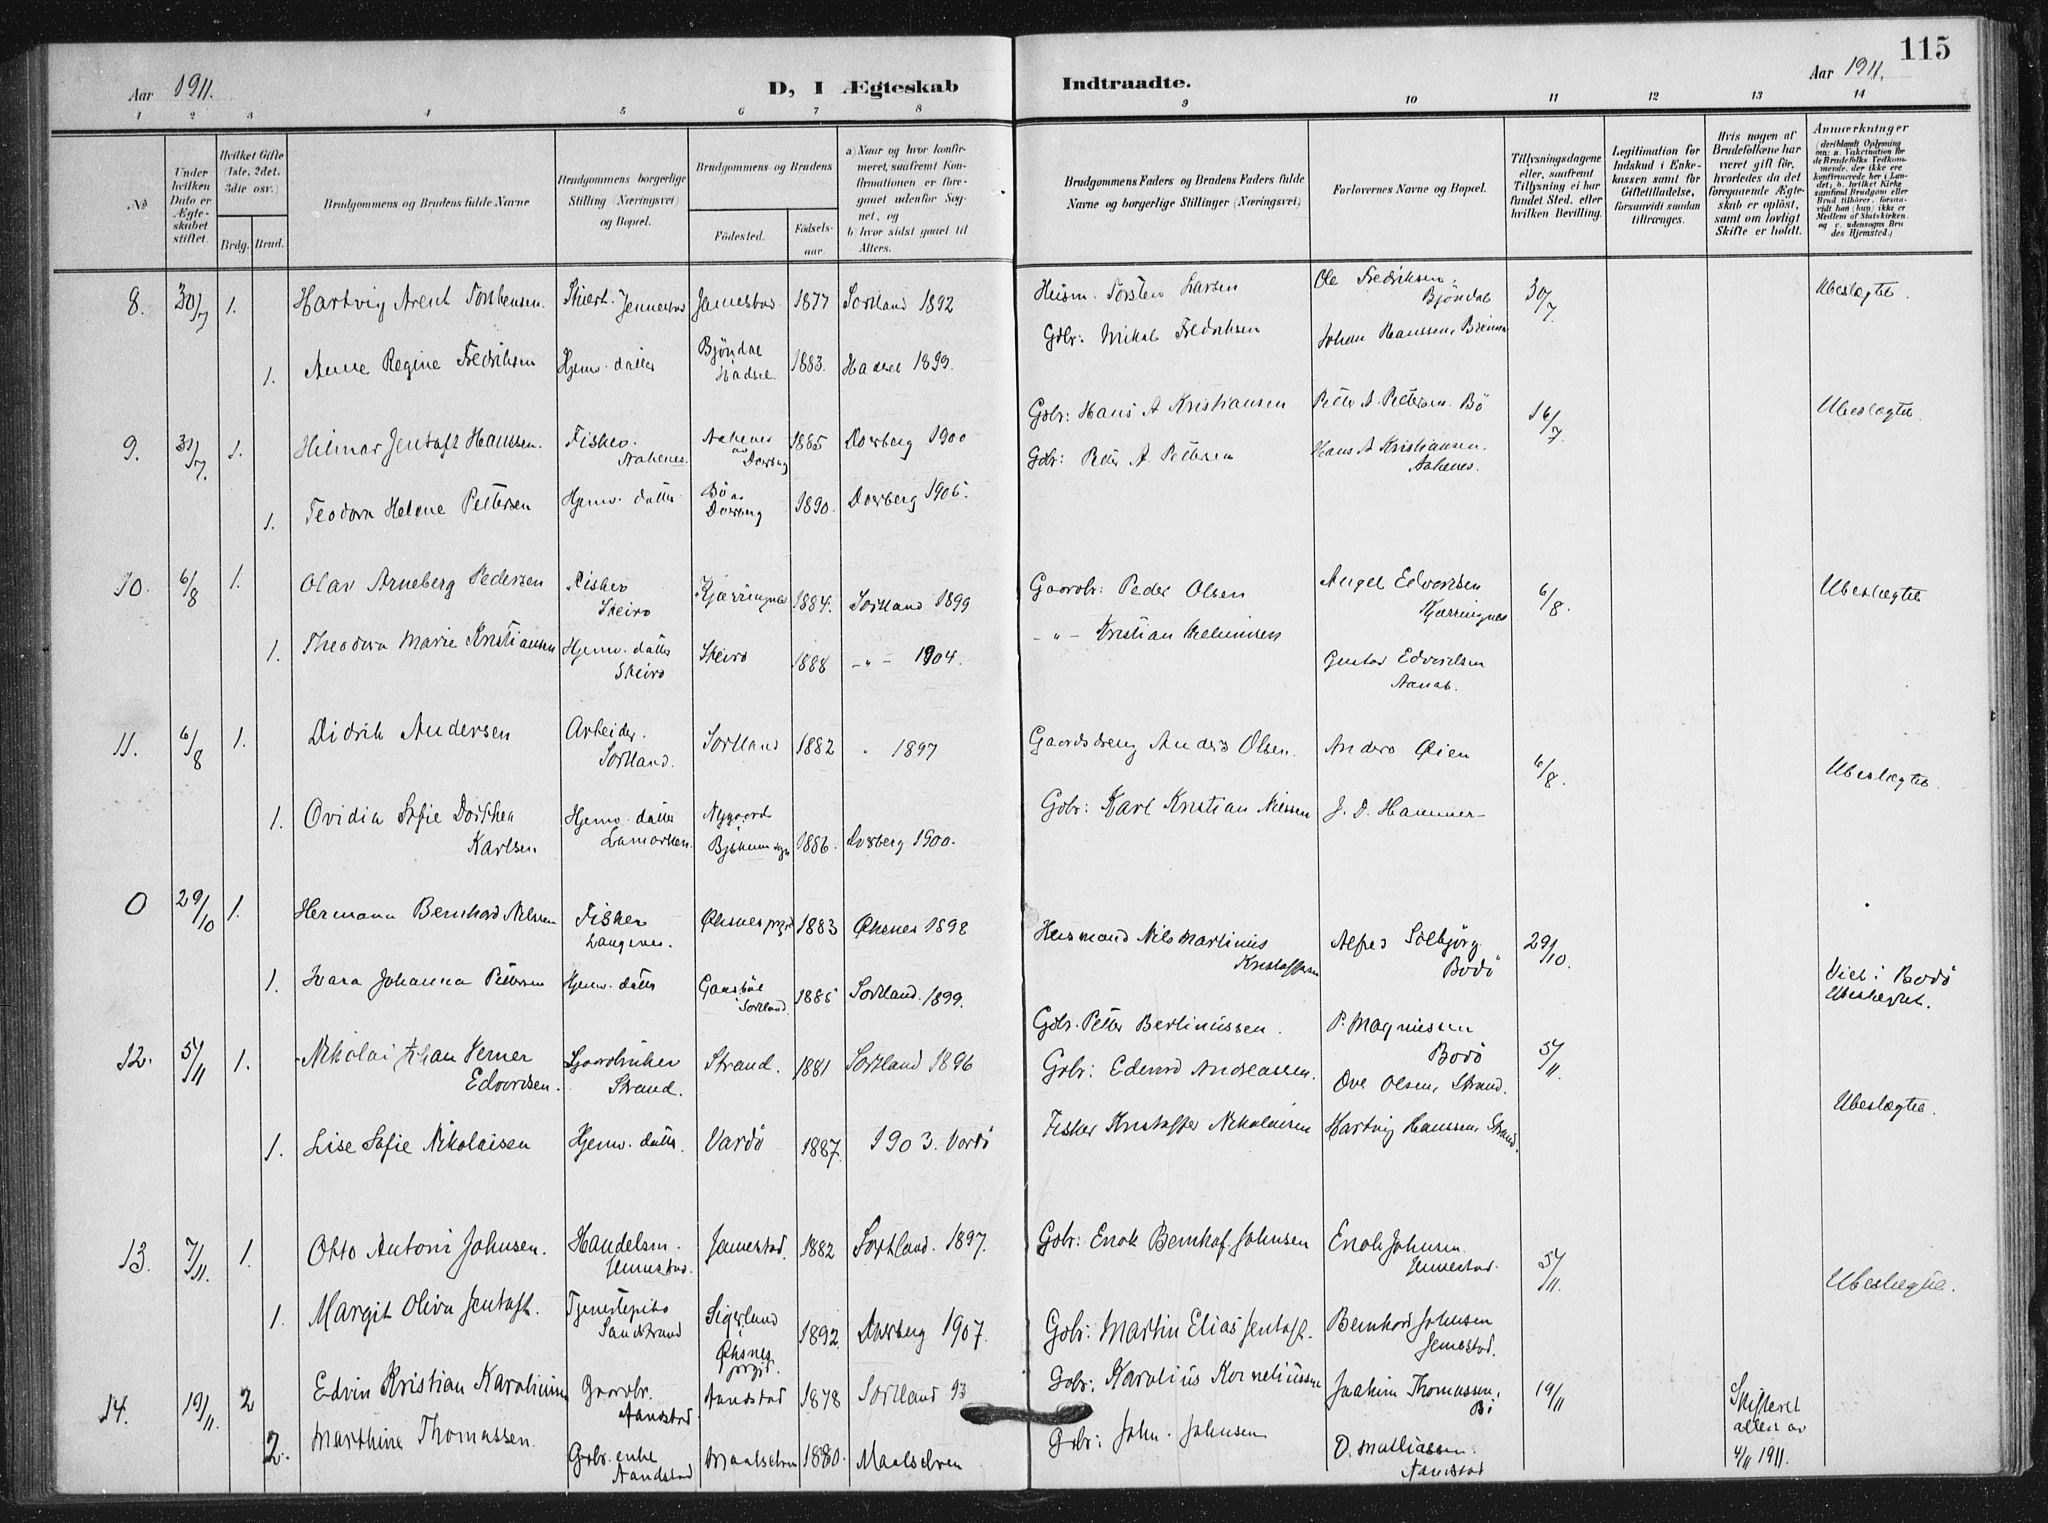 115
Aar 1911.
D, I Ægteskab
Indtraadte.
Aar 1911.
1 2 3 4 5 6 7 8 9 10 11 12 13 14
No
Under hvilken Dato er Ægteskabet stiftet.
Hvilket Gifte (1ste, 2det, 3die osv.)
Brdg. Brud.
Brudgommens og Brudens fulde Navne
Brudgommens borgerlige Stilling (Næringsvei) og Bopæl.
Brudgommens og Brudens
Fødested.
Fødselsaar.
a) Naar og hvor konfirmeret, saafremt Konfirmationen er foregaaet udenfor Sognet, og
b hvor sidst gaaet til Alters.
Brudgommens Faders og Brudens Faders fulde Navne og borgerlige Stillinger (Næringsvei)
Forlovernes Navne og Bopæl.
Tillysningsdagene eller, saafremt Tillysning ei har fundet Sted, efter hvilken Bevilling.
Legitimation for Indskud i Enkekassen samt for Giftetilladelse, forsaavidt saadan tiltrænges.
Hvis nogen af Brudefolkene har været gift før, hvorledes da det foregaaende Ægteskab er opløst, samt om lovligt Skifte er holdt.
Anmærkninger
8. 30/7 1. Hartvig Arent Torstensen. Jennestad Jennestad 1877 Sortland 1892 Husm: Torsten Larsen Ole Fredriksen, Bjöndal 30/7 Ubeslægted.
1. Anne Regine Fredriksen Hjemv. datter Bjöndal Hadsel 1883. Hadsel 1899. Gbr: Mikal Fredriksen Johan Hanssen,
9. 31/7. 1. Hilmar Jentoft Hanssen. Fisker. Aakenes. Aakenes Dverberg 1885 Dverberg 1900 Gbr: Hans A Kristiansen Peter A. Pettersen. Bö 16/7 Ubeslægted.
1. Teodora Helene Pettersen Hjemv. datter Bö Dverberg 1890. Dverberg 1905. Gbr: Peter A. Pettersen Hans A Kristiansen. Aakenes.
10. 6/8 1. Olav Arneberg Pedersen Fisker Steiro Kjærringnes 1884. Sortland 1899 Gaardbr: Peder Olsen Angel Edvardsen Kjærringnes 6/8. Ubeslægted
1. Theodora Marie Kristiansen Hjemv. datter Steiro Steiro 1888 -"- 1904. -"- Kristian Gustav Edvardsen
11. 6/8 1. Didrik Andersen Arbeider. Sortland. Sortland 1882 " 1897 Gaardsdreng Anders Olsen. Anders Øien 6/8. Ubeslægted.
1. Ovidia Sofie Dorthea Karlsen Hjemv. datter Nygaard 1886. Dverberg 1900. Gbr: Karl Kristian Nilssen J. D. Hammer
0 29/10 1. Hermann Bernhard Nilssen Fisker Langenes. Øksnes prgj 1883 Øksnes 1898 Husmand Nils Martinus Kristoffersen Alfred Solbjörg Bodö 29/10.
1. Ivara Johanna Pettersen Hjemv. datter Sortland. 1885 Sortland. 1899. Gbr. Petter Bertinussen. P. Magnussen Bodö Viet i Bodö Ubeslegted.
12. 5/11 1. Nikolai Johan Verner Edvardsen. Gaardbruker Strand. Strand. 1881 Sortland 1896 Gbr: Edvard Andreassen. Ove Olsen, Strand. 5/11.
1. Lise Sofie Nikolaisen Hjemv. datter. Vardö 1887. 1903. Vardö Fisker Kristoffer Nikolaisen Hartvig Hanssen, Strand. Ubeslægted.
13. 7/11. 1. Otto Antoni Johnsen. Handelsm. Jennestad. Jennestad. 1882 Sortland. 1897. Gbr: Enok Bernhof. Johnsen Enok Johnsen. Jennestad. 5/11.
1. Margit Oliva Jentoft. Tjenestepike Sandstrand Sigerland Øksnes prgj. 1892 Dverberg 1907. Gbr: Martin Elias Jentoft. Bernhard Johnsen Jennestad. Ubeslegted.
14. 19/11. 2 Edvin Kristian Karolius Gaardbr. Aandstad Aandstad 1878 Sortland 93 Gbr: Karolius Korneliussen Joakim Thomassen, Bö 19/11 Skifteret attest av 4/11 1911.
2. Marthine Thomassen. Gbr. enke Aandstad Maalselven 1880. Maalselven Gbr: John. Johnsen D. Mathiassen. Aandstad